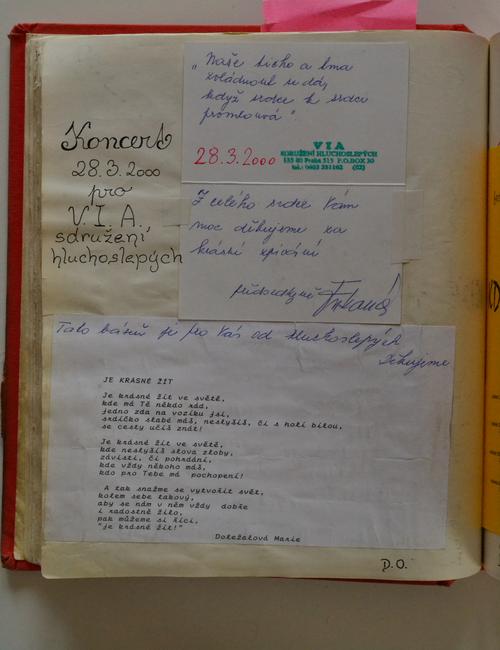 Koncert
28.3.2000
pro
V.I.A.
sdružení
hluchoslepých
„Naše ticho a tma
zvládnout se dá,
když srdce k srdci
promlouvá".
28.3.2000
VIA
SDRUŽENÍ HLUCHOSLEPÝCH
135 00 Praha 515 P.O.BOX 30
tel.: 0603 251162 (02)
Z celého srdce Vám
moc děkujeme za
krásné zpívání
předsedkyně
Tato báseň je pro Vás od hluchoslepých
Děkujeme
JE KRÁSNÉ ŽÍT
Je krásné žít ve světě,
kde má Tě někdo rád,
jedno zda na vozíku jsi,
srdíčko slabé máš, neslyšíš, či s holí bílou,
se cesty učíš znát!
Je krásné žít ve světě,
kde neslyšíš slova zloby,
závisti, či pohrdání,
kde vždy někoho máš,
kdo pro Tebe má pochopení!
A tak snažme se vytvořit svět,
kolem sebe takový,
aby se nám v něm vždy dobře
i radostně žilo,
pak můžeme si říci,
"je krásné žít!"
Doležalová Marie
D.O.